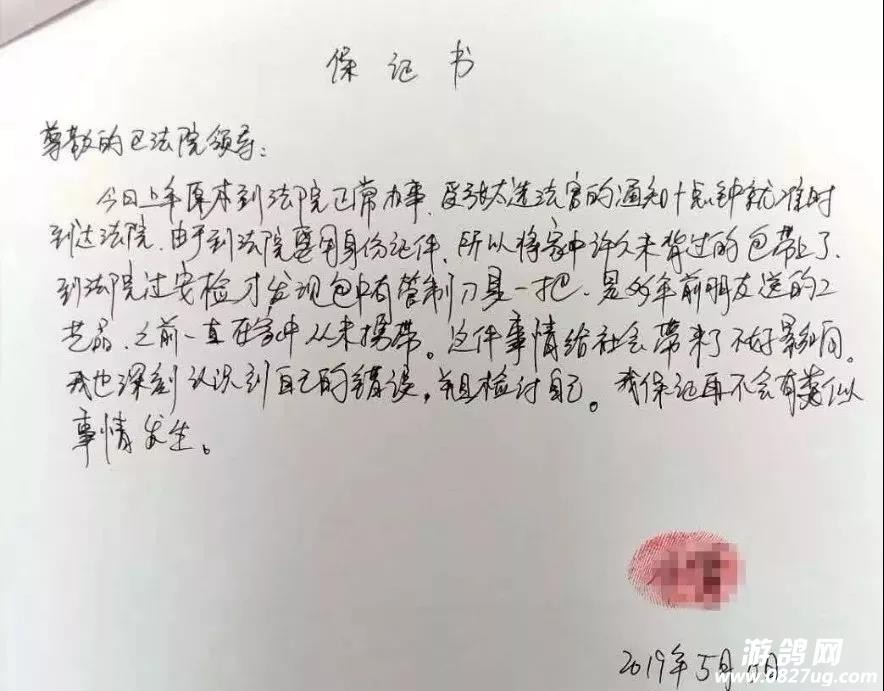 保证书
尊敬的巴法院领导：
今日上午原本到法院正常办事，受张太选法官的通知十点钟就准时
到达法院，由于到法院要用身份证件，所以将家中许久未背过的包带上了，
到法院过安检才发现包中有管制刀具一把，是年前朋友送的工
艺品，之前一直在家中从未携带。这件事情给社会带来了不好影响。
我也深刻认识到自己的错误，并且检讨自己。我保证再不会有类似
事情发生。
2019年5月日
游鸽网
www.0827ug.com